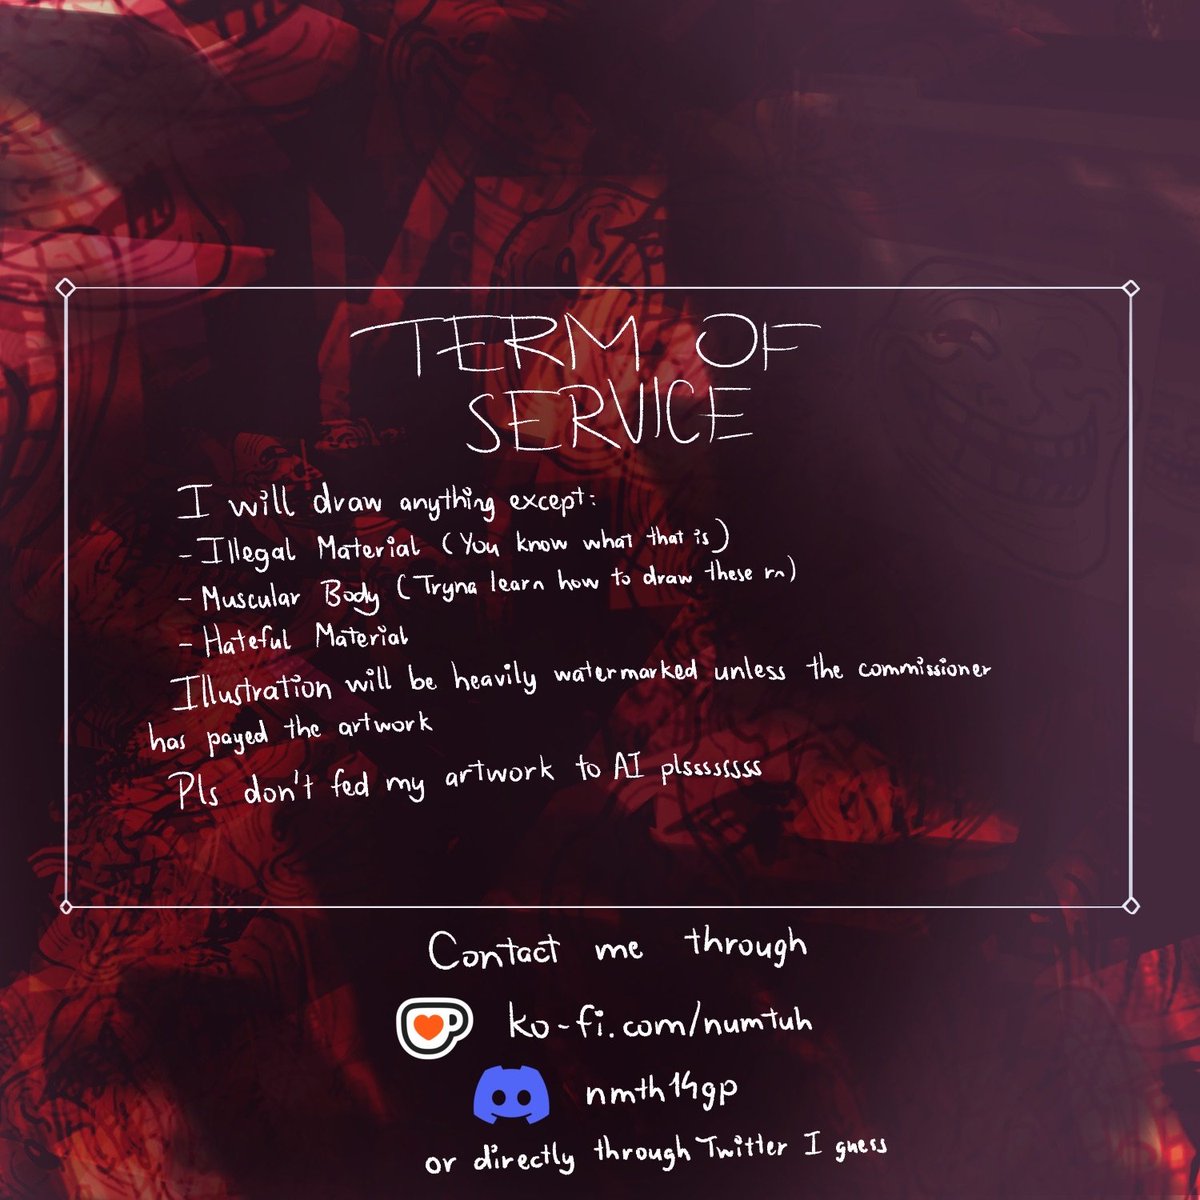 TERM OF
SERVICE
I will draw anything except:
- Illegal Material (You know what that is)
- Muscular Body (Tryna learn how to draw these rn)
- Hateful Material
Illustration will be heavily watermarked unless the commissioner
has payed the artwork
Pls don't fed my artwork to AI plssssssss
Contact me through
ko-fi.com/numtuh
nmth14gp
or directly through Twitter I guess